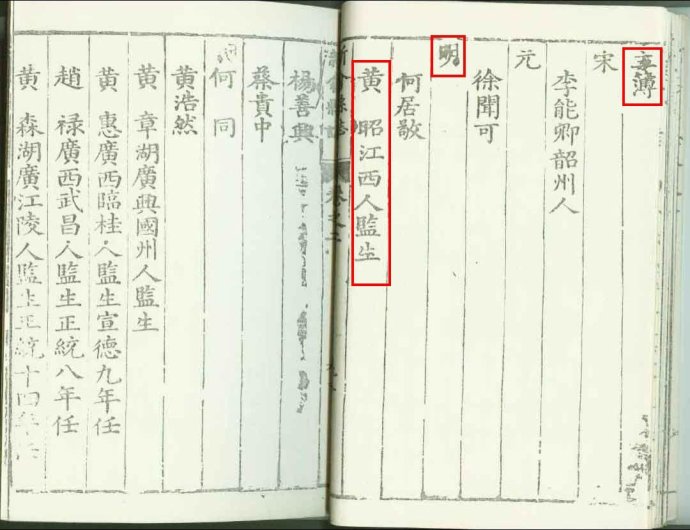 主簿
宋
李能卿韶州人
元
徐聞可
明
何居敬
黄 昭江西人監生
新會縣志 卷之二
楊善興
蔡貴中
何 同
黄浩然
黄 章湖廣興國州人監生
黄 惠廣西臨桂人監生宣德九年任
趙 禄廣西武昌人監生正統八年任
黄 森湖廣江陵人監生正統十四年任